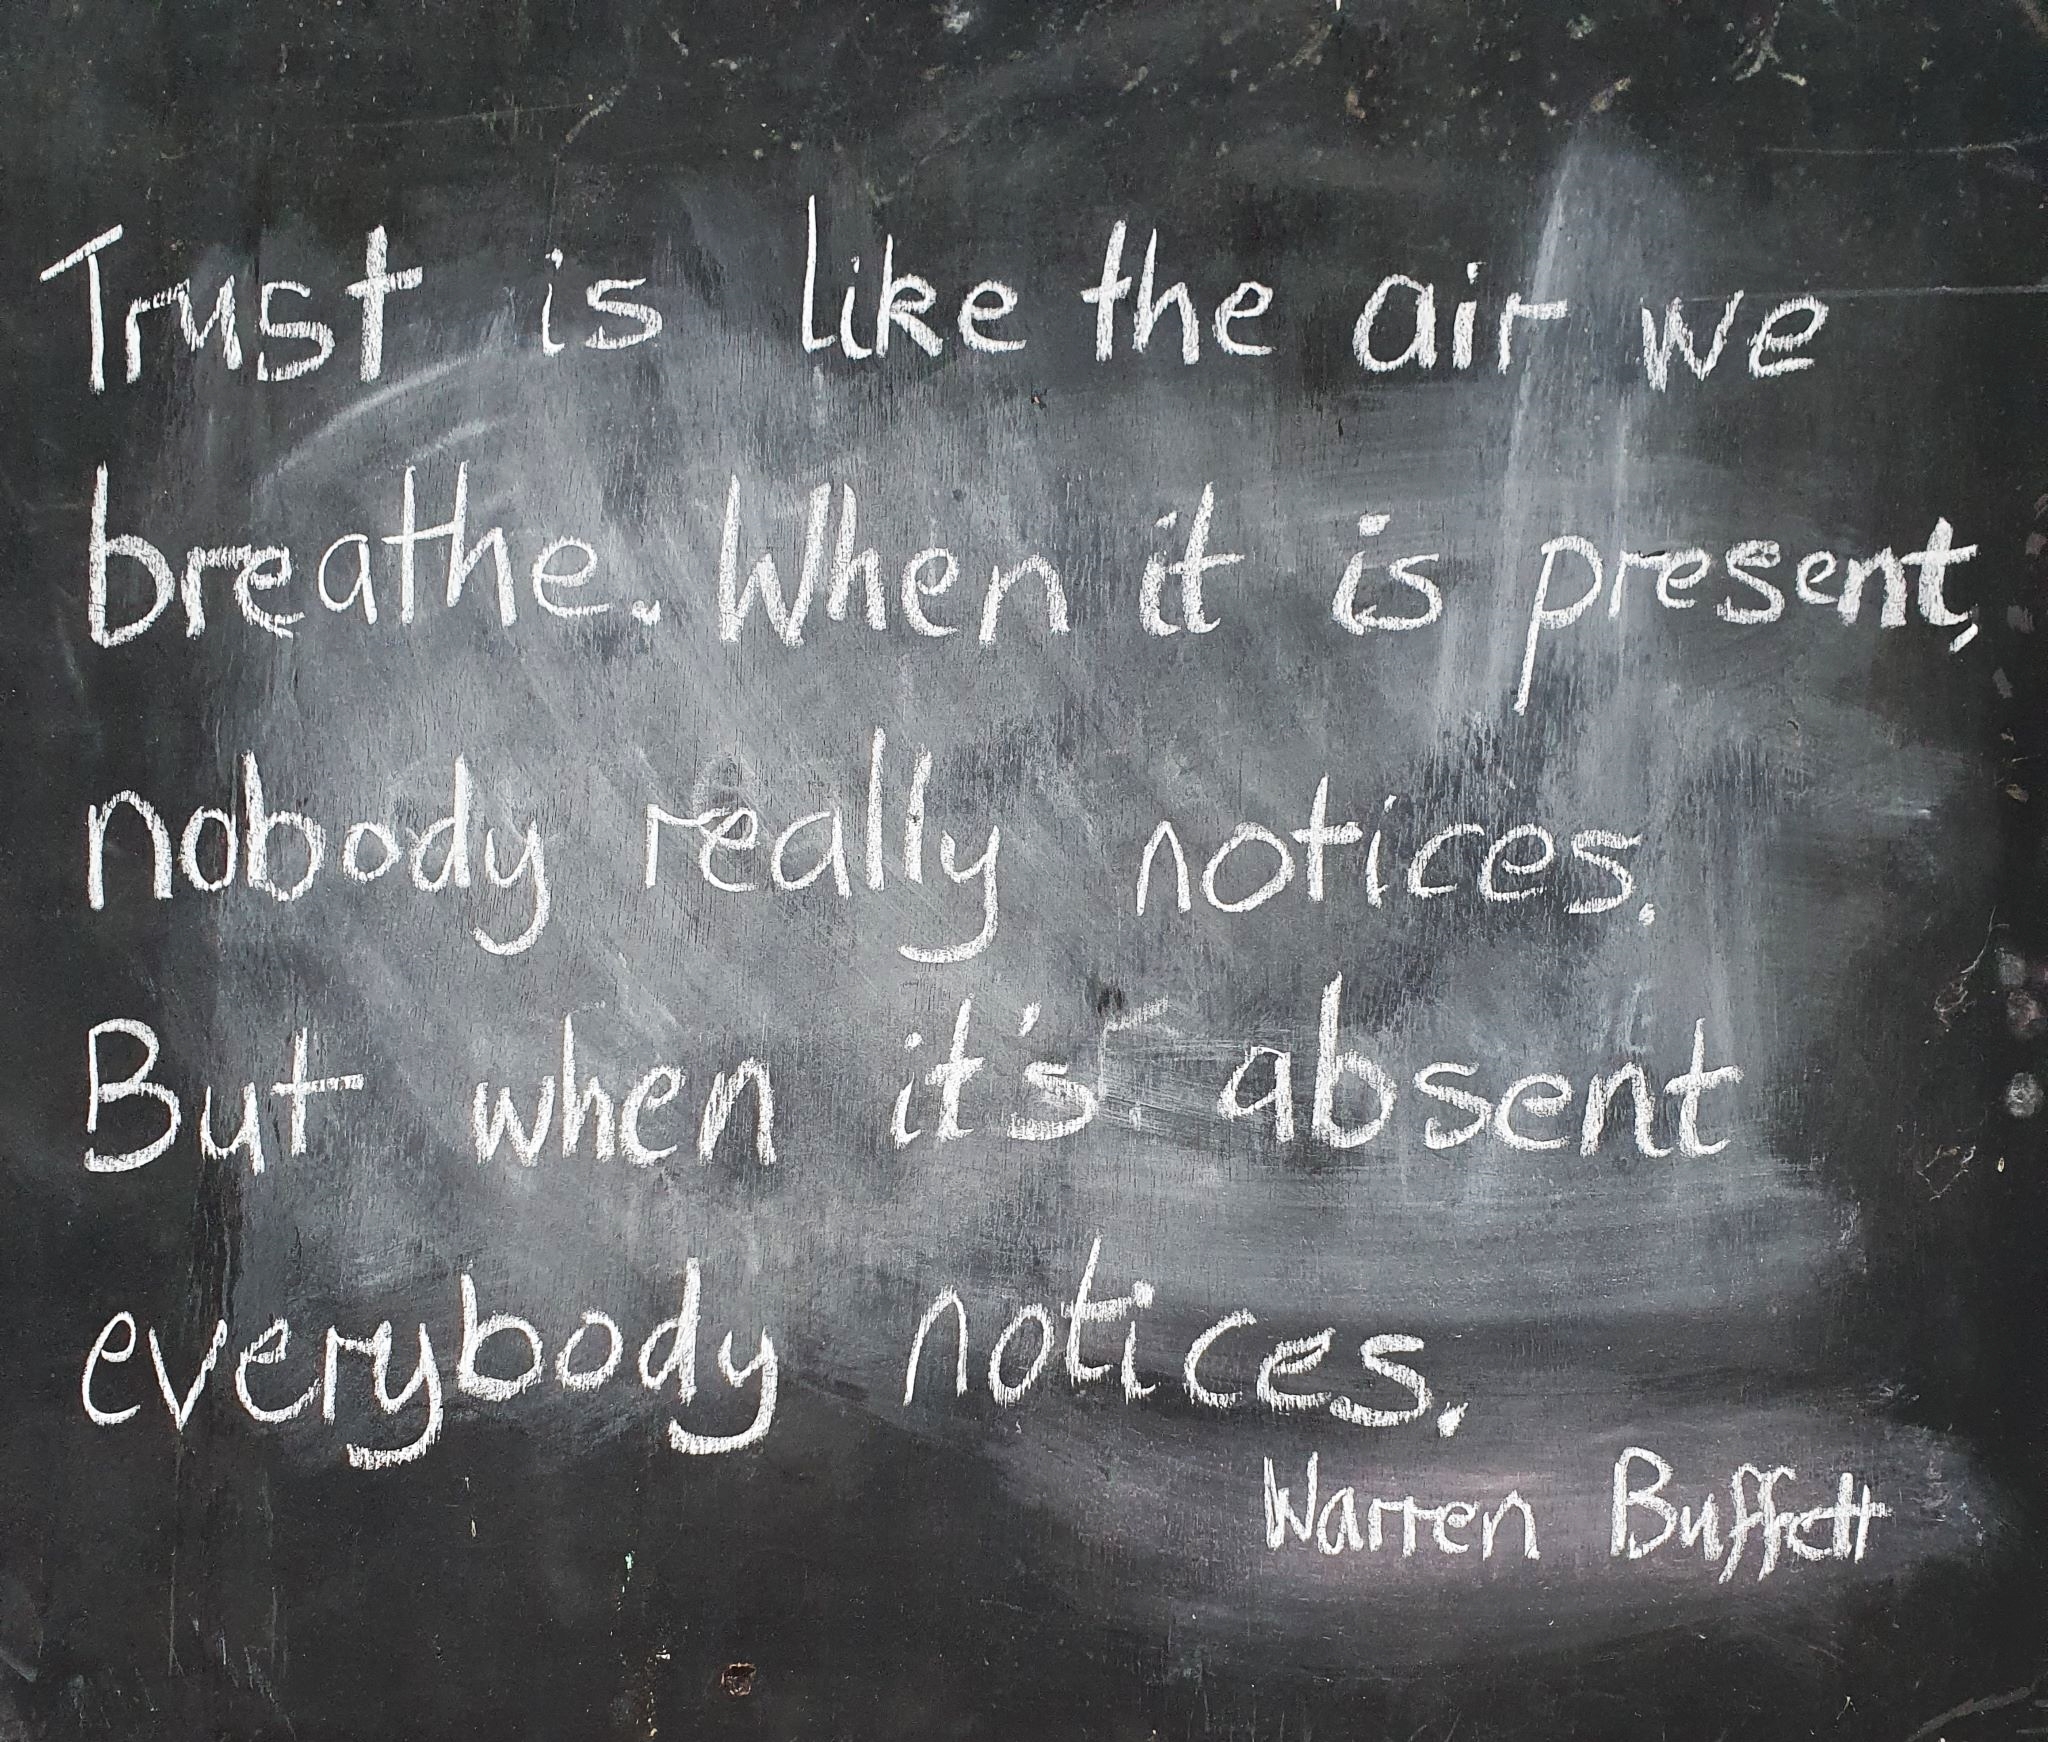 Trust is like the air we
breathe. When it is present,
nobody really notices.
But when it's absent
everybody notices.
Warren Buffett